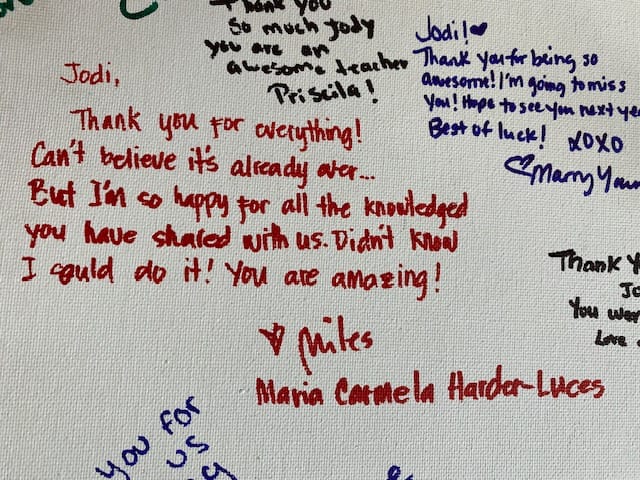 Thank you
so much Jody
you are an
awesome teacher
Priscila!
Jodi!
Thank you for being so
awesome! I'm going to miss
you! Hope to see you next ye
Best of luck! XOXO
Jodi,
Thank you for everything!
Can't believe it's already over...
But I'm so happy for all the knowledged
you have shared with us. Didn't know
I could do it! You are amazing!
Miles
Maria Carmela Harder-Luces
Thank Y
Jo
You wer
Love
you for
us